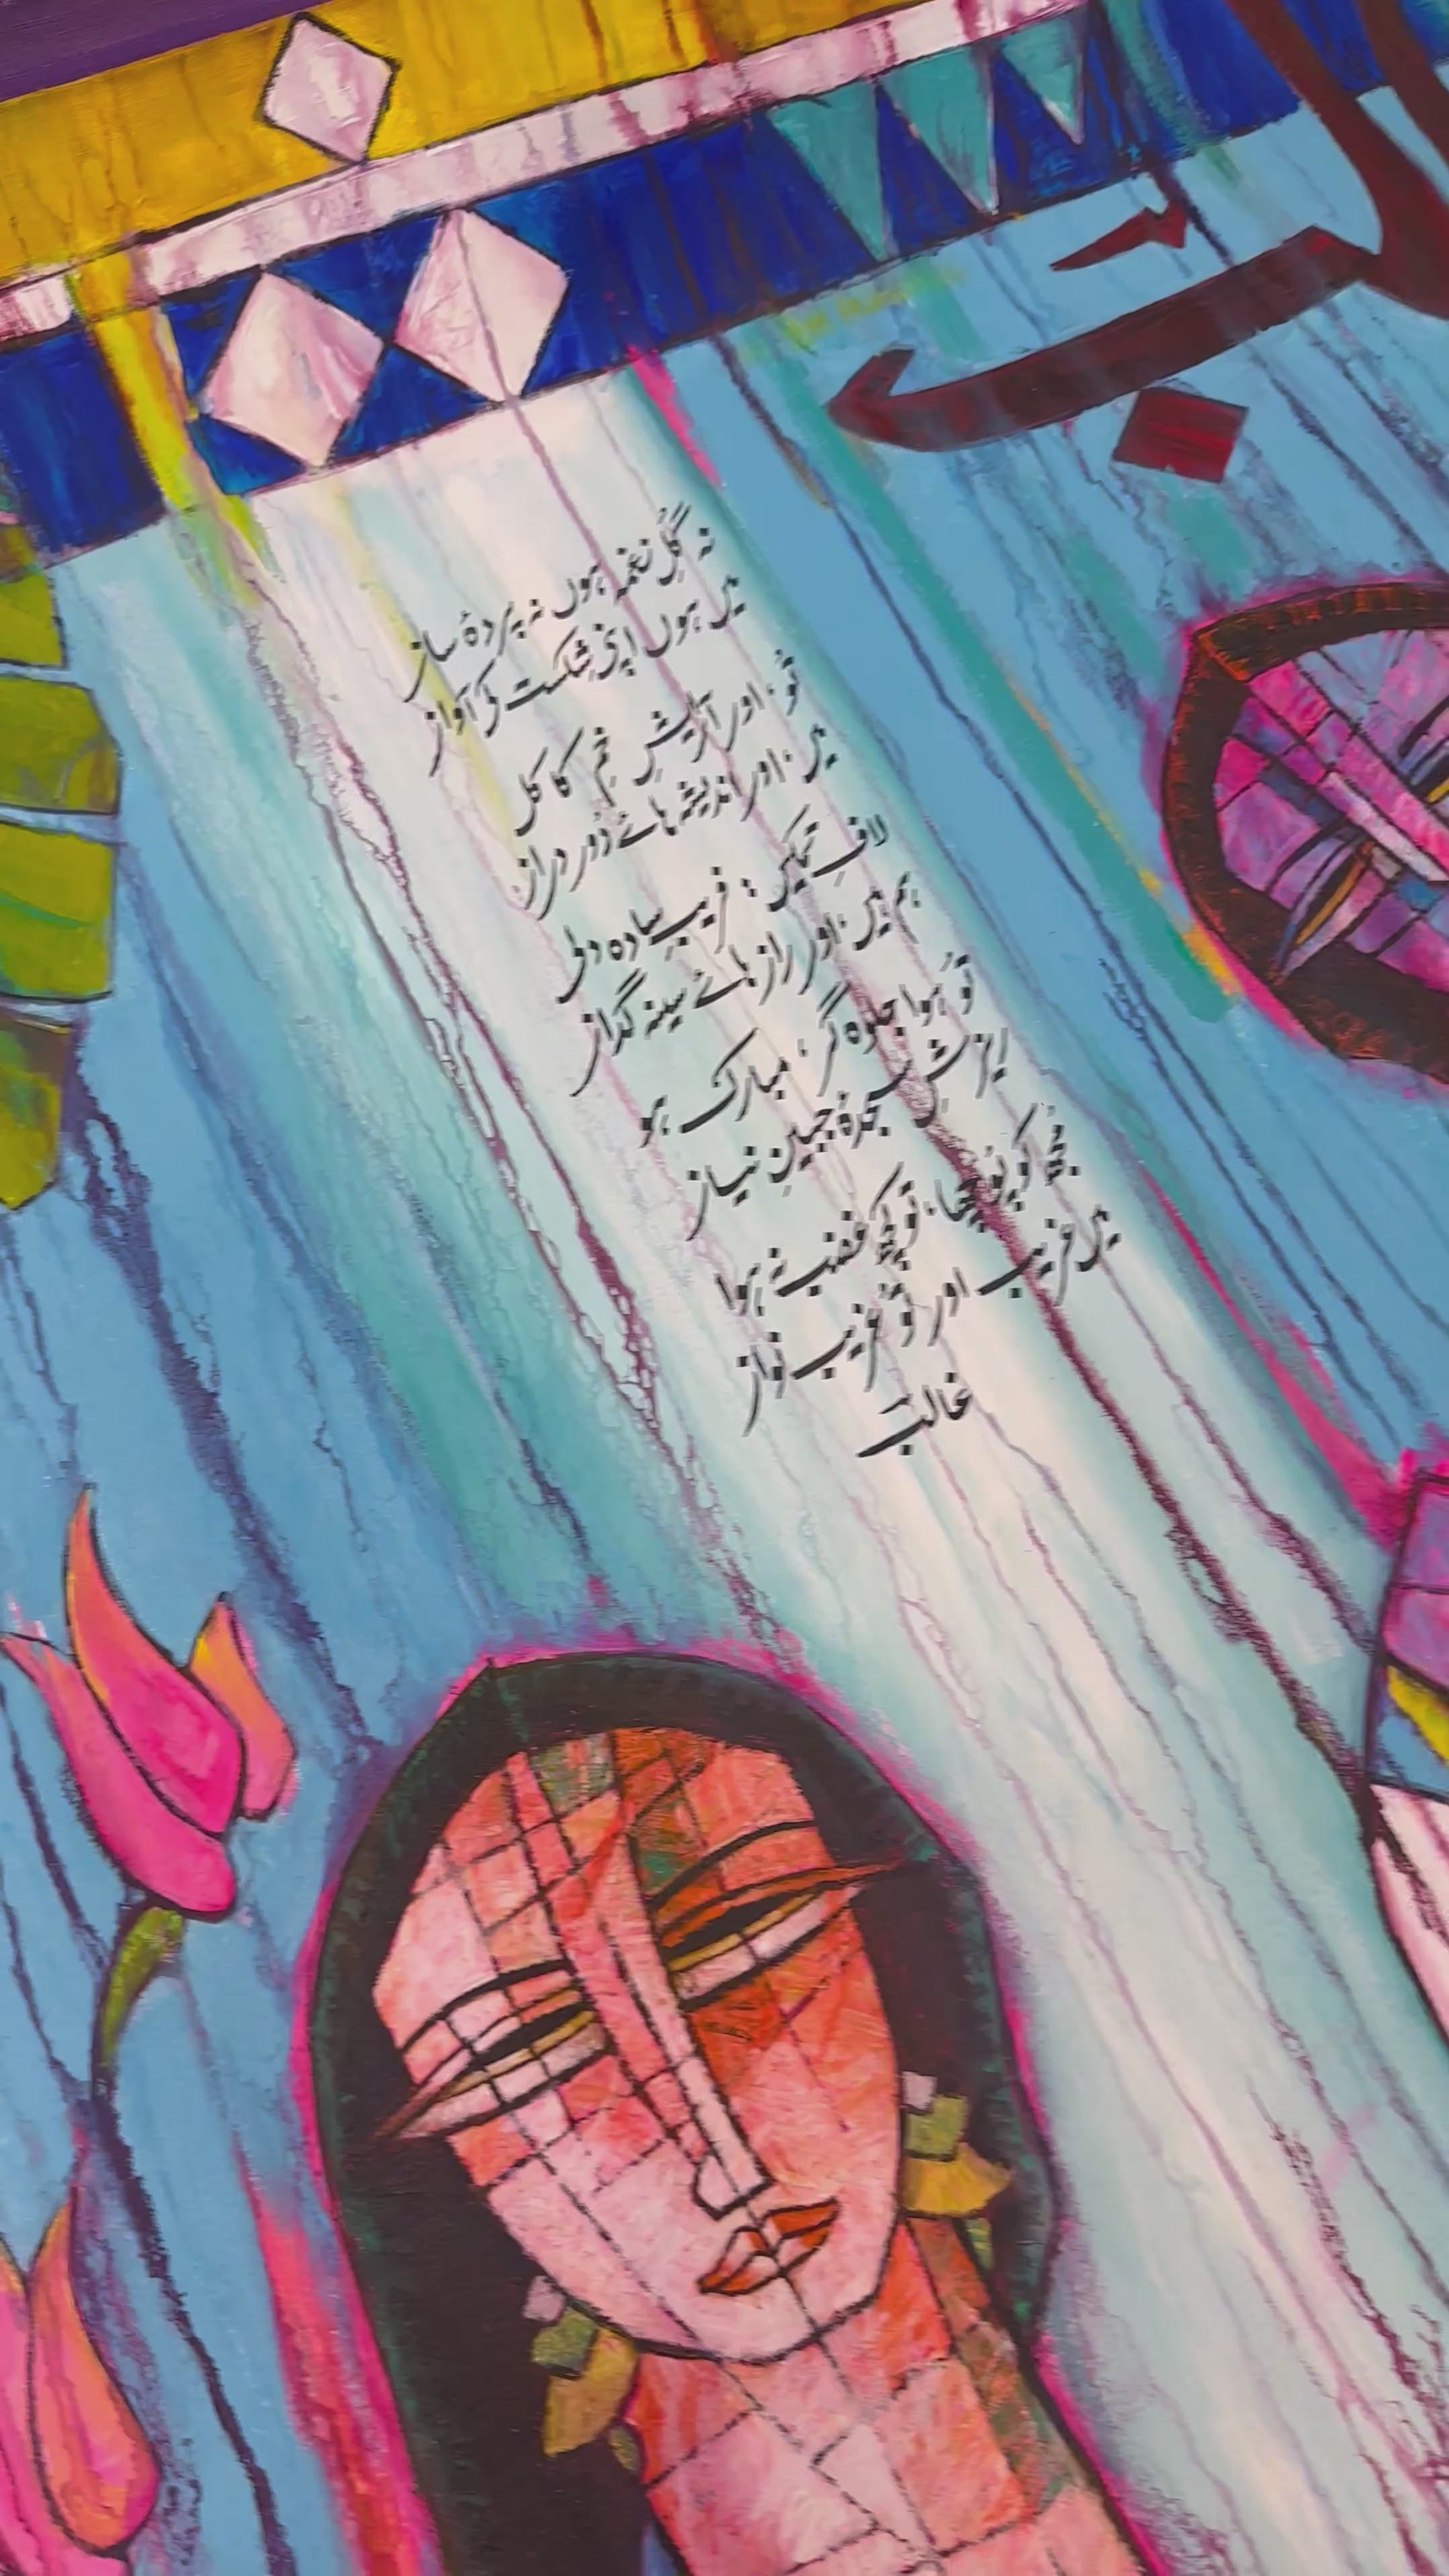 نہ گُلِ نغمہ ہوں نہ پردۂ ساز
میں ہوں اپنی شِکست کی آواز
تُو، اور آرایشِ خَمِ کاکل
میں، اور اندیشہ ہائے دُور دراز
لافِ تمکیں، فریبِ سادہ دلی
ہم ہیں، اور راز ہائے سینہ گداز
تُو ہُوا جلوہ گر، مبارک ہو
ریزشِ سجدۂ جبینِ نیاز
مُجھ کو پُوچھا، تو کُچھ غضب نہ ہوا
میں غریب اور تُو غریب نواز
غالب